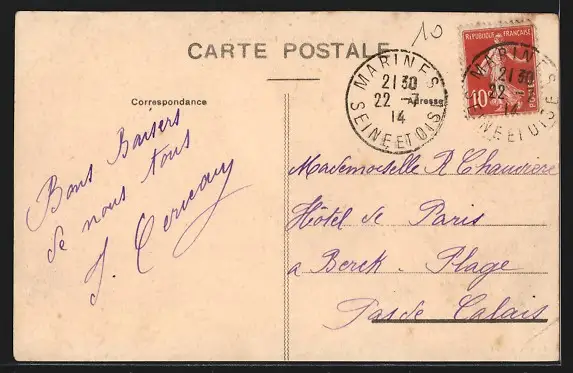 10
CARTE POSTALE
RÉPUBLIQUE FRANÇAISE
10
POSTES
MARINES
21 30
22 -7
14
SEINE ET OISE
MARINES
21 30
22 -7
14
SEINE ET OISE
Correspondance
Adresse
Bons Baisers
de nous tous
J.
Mademoiselle R Chaudière
Hôtel de Paris
a Berck-Plage
Pas de Calais